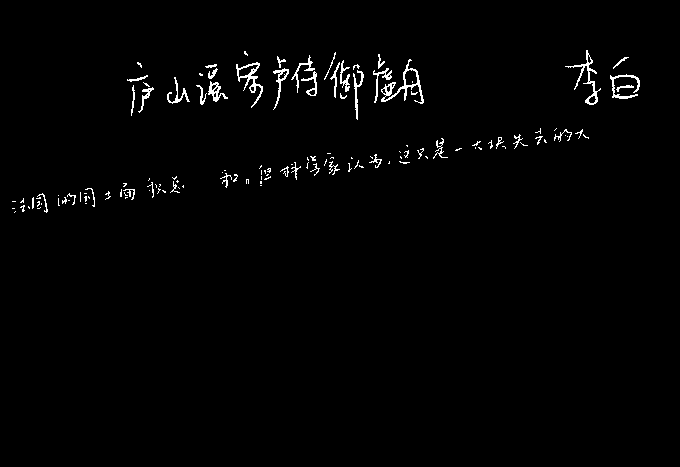 庐山谣寄卢侍御虚舟 李白
法国的国土面积总 和。但科学家认为，这只是一大块失去的大